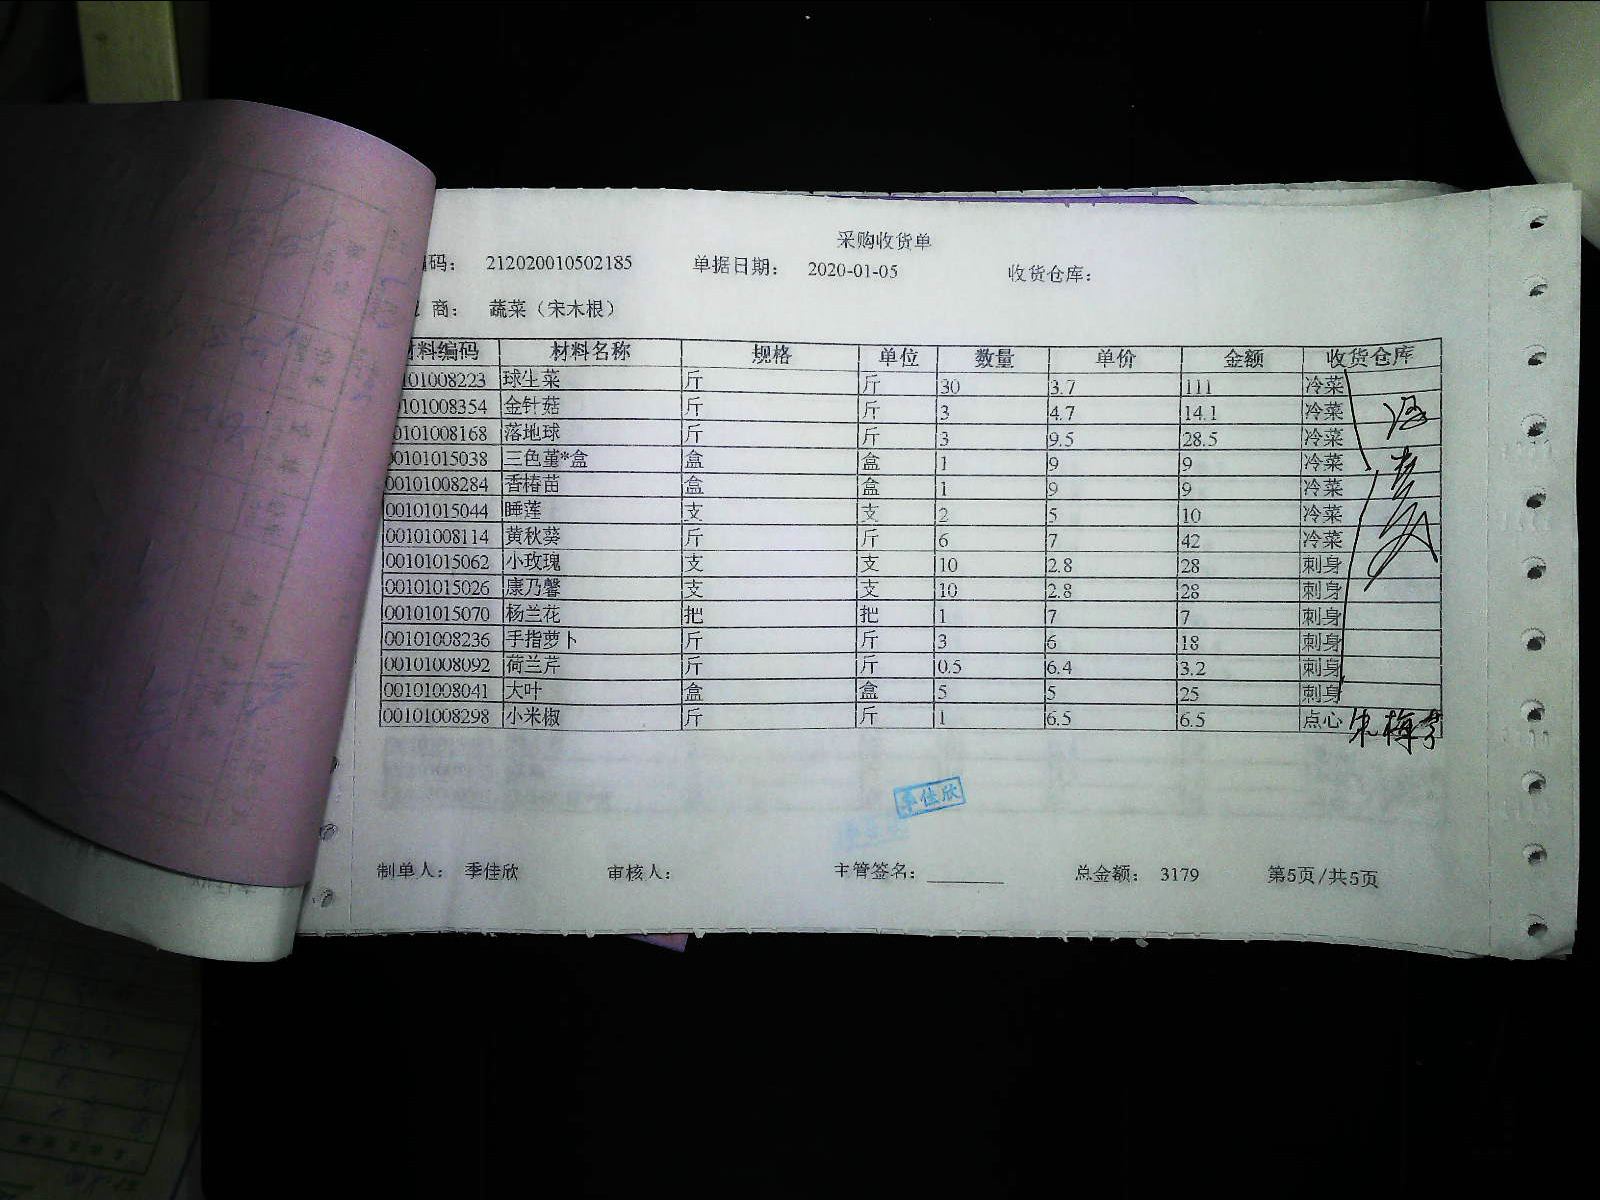 采购收货单
码： 212020010502185 单据日期： 2020-01-05 收货仓库：
商： 蔬菜（宋木根）
材料编码 材料名称 规格 单位 数量 单价 金额 收货仓库
101008223 球生菜 斤 斤 30 3.7 111 冷菜
0101008354 金针菇 斤 斤 3 4.7 14.1 冷菜
0101008168 落地球 斤 斤 3 9.5 28.5 冷菜
00101015038 三色堇*盒 盒 盒 1 9 9 冷菜
00101008284 香椿苗 盒 盒 1 9 9 冷菜
00101015044 睡莲 支 支 2 5 10 冷菜
00101008114 黄秋葵 斤 斤 6 7 42 冷菜
00101015062 小玫瑰 支 支 10 2.8 28 刺身
00101015026 康乃馨 支 支 10 2.8 28 刺身
00101015070 杨兰花 把 把 1 7 7 刺身
00101008236 手指萝卜 斤 斤 3 6 18 刺身
00101008092 荷兰芹 斤 斤 0.5 6.4 3.2 刺身
00101008041 大叶 盒 盒 5 5 25 刺身
00101008298 小米椒 斤 斤 1 6.5 6.5 点心
季佳欣
制单人： 季佳欣 审核人： 主管签名：________ 总金额： 3179 第5页/共5页